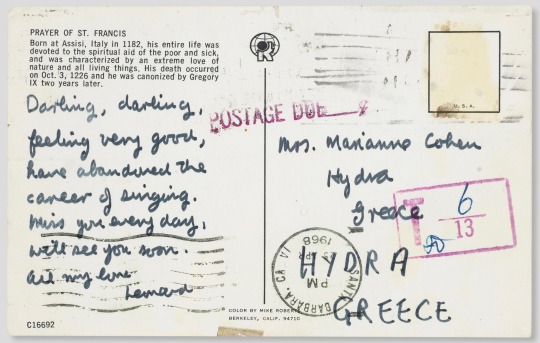 PRAYER OF ST. FRANCIS
Born at Assisi, Italy in 1182, his entire life was
devoted to the spiritual aid of the poor and sick,
and was characterized by an extreme love of
nature and all living things. His death occurred
on Oct. 3, 1226 and he was canonized by Gregory
IX two years later.
Darling, darling,
feeling very good,
have abandoned the
career of singing.
Miss you every day,
will see you soon.
All my love
Leonard
C16692
POSTAGE DUE
U.S.A.
Mrs. Marianne Cohen
Hydra
Greece
T 6
13
HYDRA
GREECE
SANTA BARBARA, CA
PM
APR
1968
COLOR BY MIKE ROBERTS
BERKELEY, CALIF. 94710